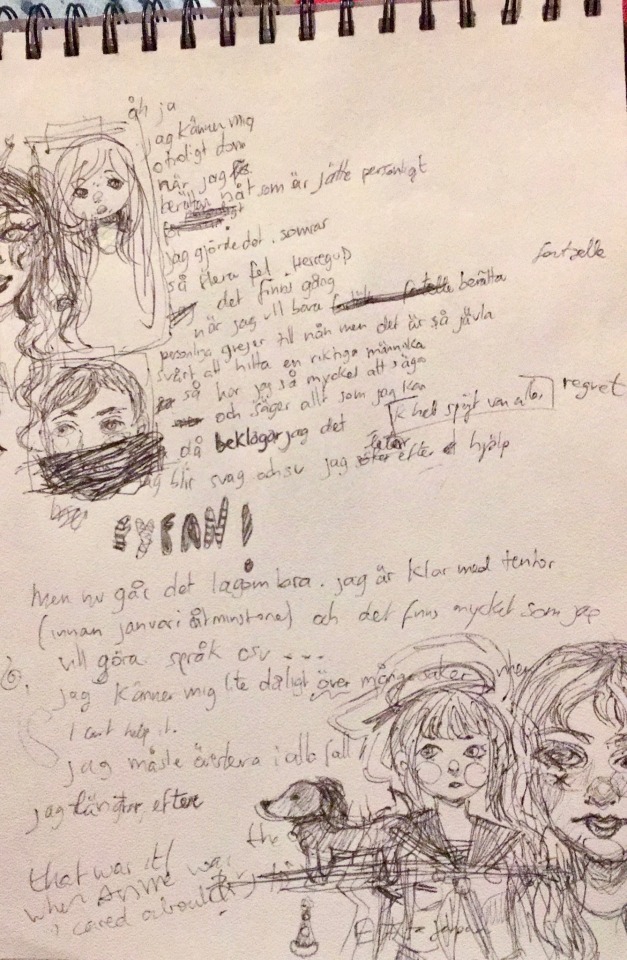 åh ja
jag känner mig
otroligt dom
när jag
berättar nåt som är jätte personligt
jag gjörde det . somrar
så flera fel .
det finns gång
fortselle
när jag vill bara berätta
personliga grejer till nån men det är så jävla
svårt att hitta en riktiga människa
så har jag så mycket att säga
och säger allt som jag kan
regret
då beklagar jag det
jag blir svag och jag efter hjälp
FYFAN!
Men nu går det lagom bara . jag är klar med tentor
(innan januari åtminstone) och det finns mycket som jag
vill göra . språk osv ---
jag känner mig lite dåligt över många saker men
I can't help it.
jag måste överleva i alla fall!
jag längtar efter
the
that was it!
when ANIME was
I cared about